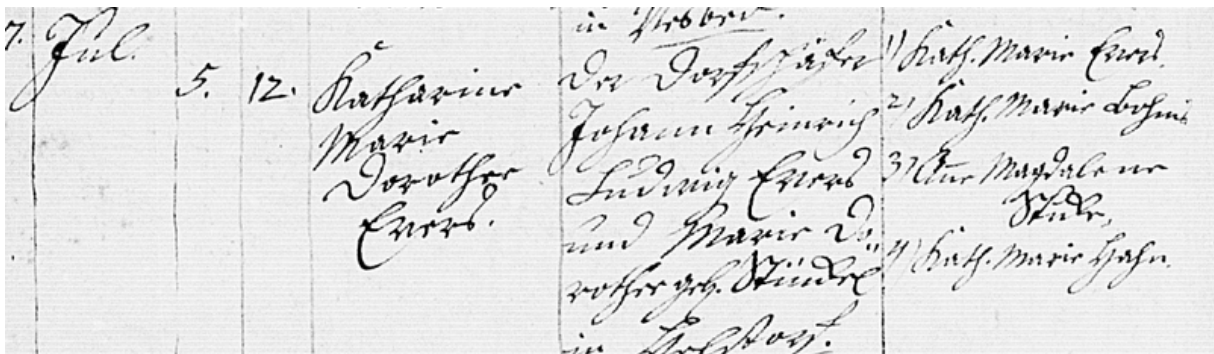 7. Jul. 5. 12.
Katharine
Marie
Dorothee
Evers.
in Vesbeck.
Der Dorfschäfer
Johann Heinrich
Ludwig Evers
und Marie Do-
rothee geb. Stünkel
in Helstorf.
1) Kath. Marie Evers.
2) Kath. Marie Bohns
3) Anne Magdalene
Stüke,
4) Kath. Marie Hahn.